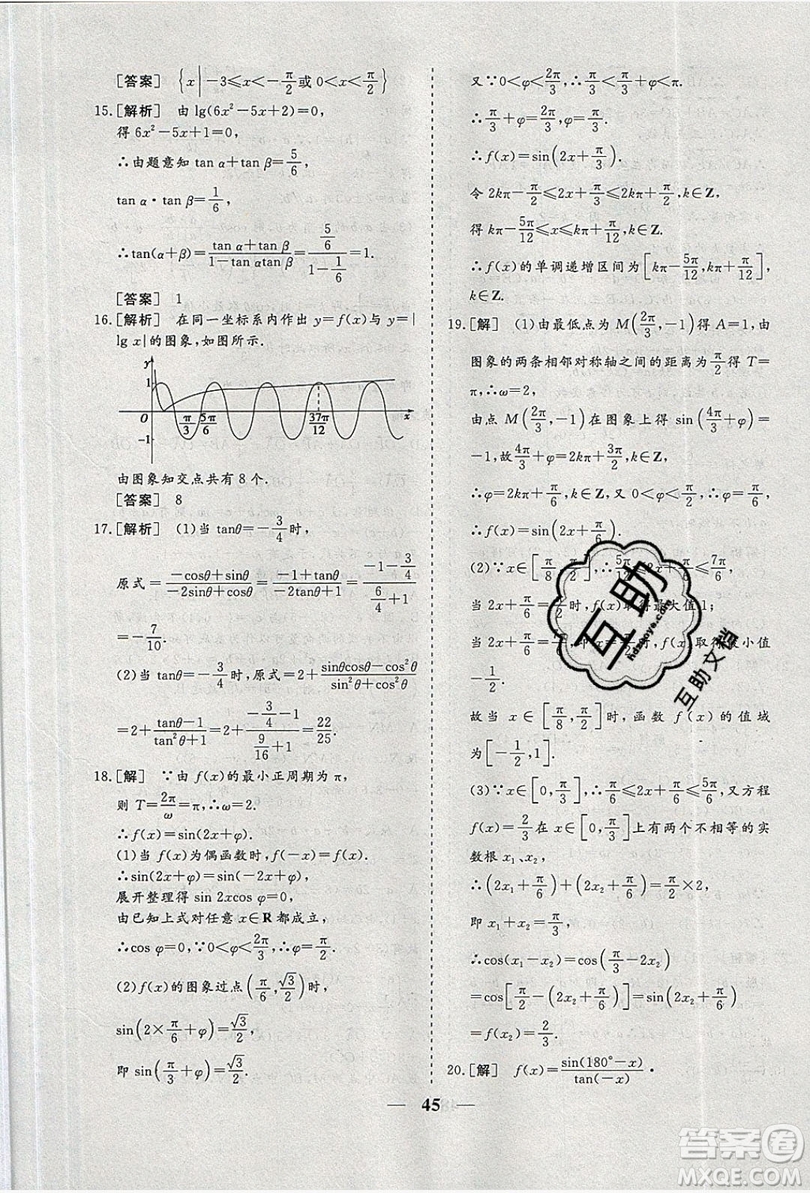 [答案] {x|-3≤x<-π/2或0<x<π/2}
15.[解析] 由 lg(6x²-5x+2)=0,
得 6x²-5x+1=0,
∴由题意知 tan α+tan β=5/6,
tan α·tan β=1/6,
∴tan(α+β)=(tan α+tan β)/(1-tan αtan β)=(5/6)/(1-1/6)=1.
[答案] 1
16.[解析] 在同一坐标系内作出 y=f(x)与 y=|
lg x|的图象,如图所示.
y
1
O π/3 5π/6 37π/12 x
-1
由图象知交点共有 8 个.
[答案] 8
17.[解析] (1)当 tanθ=-3/4时,
原式=(-cosθ+sinθ)/(-2sinθ+cosθ)=(-1+tanθ)/(-2tanθ+1)=(-1-3/4)/(6/4+1)
=-7/10.
(2)当 tanθ=-3/4时,原式=2+(sinθcosθ-cos²θ)/(sin²θ+cos²θ)
=2+(tanθ-1)/(tan²θ+1)=2+(-3/4-1)/(9/16+1)=22/25.
18.[解] ∵由 f(x)的最小正周期为 π,
则 T=2π/ω=π,∴ω=2.
∴f(x)=sin(2x+φ).
(1)当 f(x)为偶函数时,f(-x)=f(x).
∴sin(2x+φ)=sin(-2x+φ),
展开整理得 sin 2xcos φ=0,
由已知上式对任意 x∈R 都成立,
∴cos φ=0.∵0<φ<2π/3,∴φ=π/2.
(2)f(x)的图象过点(π/6,√3/2)时,
sin(2×π/6+φ)=√3/2,
即 sin(π/3+φ)=√3/2.
又∵0<φ<2π/3,∴π/3<π/3+φ<π.
∴π/3+φ=2π/3,φ=π/3.
∴f(x)=sin(2x+π/3).
令 2kπ-π/2≤2x+π/3≤2kπ+π/2,k∈Z,
得 kπ-5π/12≤x≤kπ+π/12,k∈Z.
∴f(x)的单调递增区间为[kπ-5π/12,kπ+π/12],
k∈Z.
19.[解] (1)由最低点为 M(2π/3,-1)得 A=1,由
图象的两条相邻对称轴之间的距离为π/2得 T=
π,∴ω=2,
由点 M(2π/3,-1)在图象上得 sin(4π/3+φ)=
-1,
故4π/3+φ=2kπ-π/2,k∈Z,
∴φ=2kπ-11π/6,又φ∈(0,π/2),∴φ=π/6.
∴f(x)=sin(2x+π/6).
(2)∵x∈[π/8,π/2],∴ ≤2x+π/6≤7π/6,
当 2x+π/6=π/2时,f(x)取得最大值 1;
当 2x+π/6= 时,f(x)取得最小值
-1/2.
故当 x∈[π/8,π/2]时,函数 f(x)的值域
为[-1/2,1].
(3)∵x∈[0,π/3],∴π/6≤2x+π/6≤5π/6,又方程
f(x)=2/3在 x∈[0,π/3]上有两个不相等的实
数根 x₁、x₂,
∴(2x₁+π/6)+(2x₂+π/6)=π/2×2,
即 x₁+x₂=π/3,
∴cos(x₁-x₂)=cos(π/3-2x₂)
=cos[π/2-(2x₂+π/6)]=sin(2x₂+π/6)
=f(x₂)=2/3.
20.[解] f(x)=sin(180°-x)/tan(-x)·
45
互助
hdzuoye.com
互助文档
答案圈
MXQE.COM